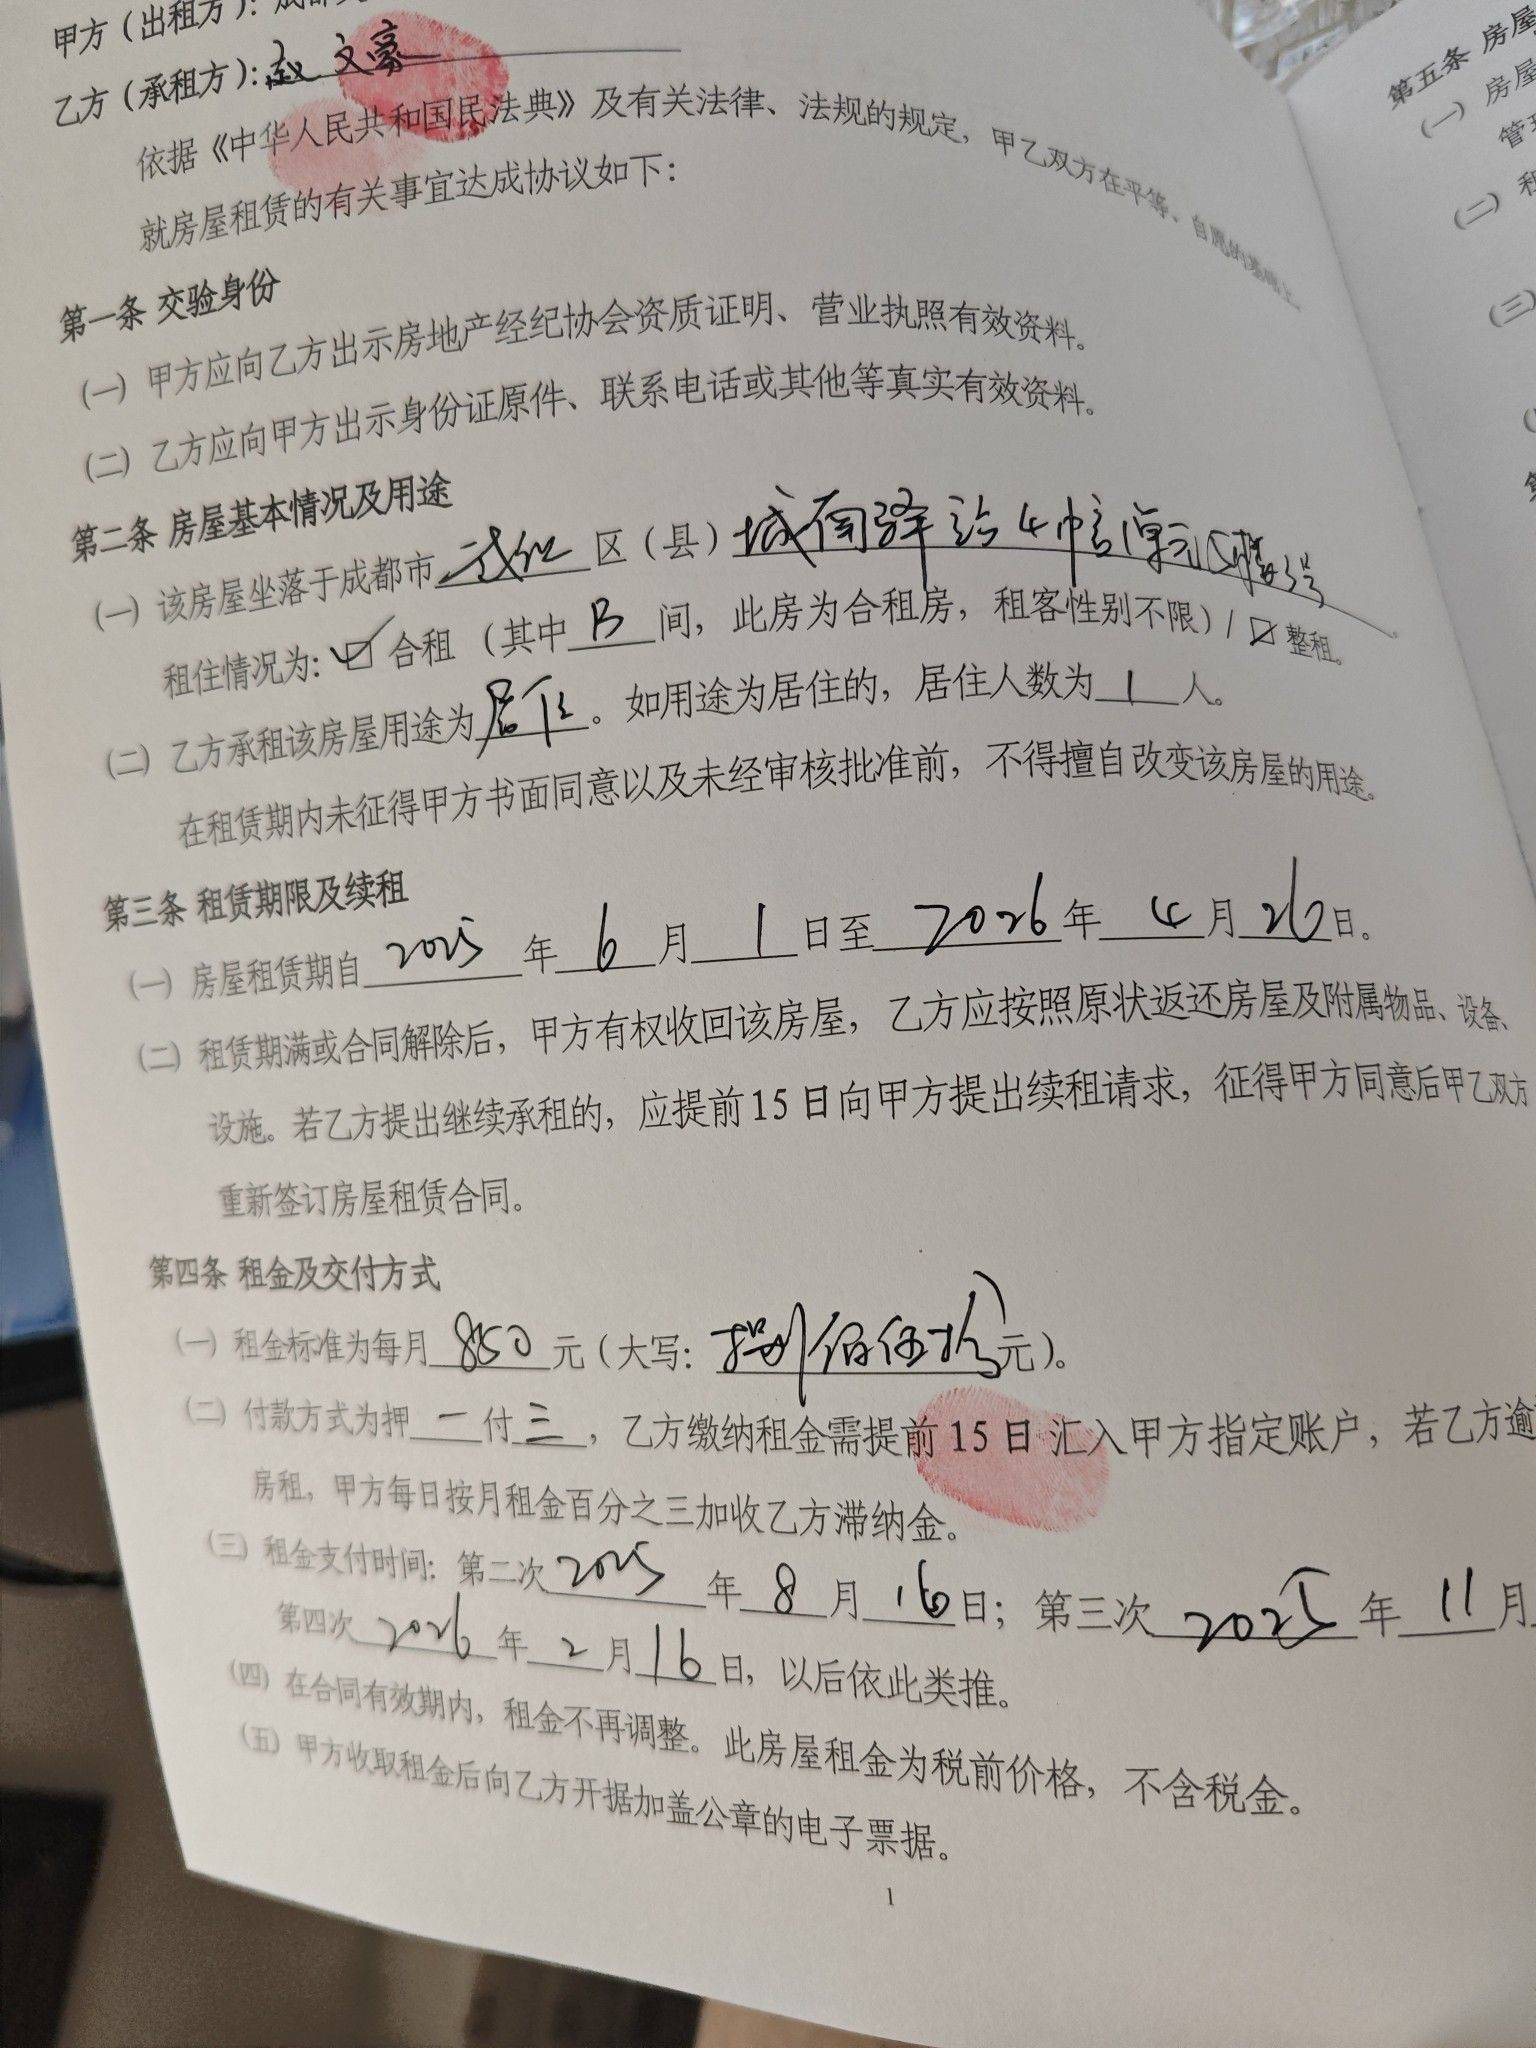 甲方（出租方）：成都
乙方（承租方）：赵文豪
依据《中华人民共和国民法典》及有关法律、法规的规定，甲乙双方在平等、自愿的基础上
就房屋租赁的有关事宜达成协议如下：
第一条 交验身份
（一）甲方应向乙方出示房地产经纪协会资质证明、营业执照有效资料。
（二）乙方应向甲方出示身份证原件、联系电话或其他等真实有效资料。
第二条 房屋基本情况及用途
（一）该房屋坐落于成都市 武侯 区（县）城南驿站4幢 单元 5楼 号
租住情况为：☑合租（其中 B 间，此房为合租房，租客性别不限）/☑整租。
（二）乙方承租该房屋用途为居住。如用途为居住的，居住人数为 1 人。
在租赁期内未征得甲方书面同意以及未经审核批准前，不得擅自改变该房屋的用途。
第三条 租赁期限及续租
（一）房屋租赁期自 2025 年 6 月 1 日至 2026 年 4 月 26 日。
（二）租赁期满或合同解除后，甲方有权收回该房屋，乙方应按照原状返还房屋及附属物品、设备、
设施。若乙方提出继续承租的，应提前15日向甲方提出续租请求，征得甲方同意后甲乙双方
重新签订房屋租赁合同。
第四条 租金及交付方式
（一）租金标准为每月 850 元（大写：捌佰伍拾元）。
（二）付款方式为押 一 付 三 ，乙方缴纳租金需提前 15 日 汇入甲方指定账户，若乙方逾
房租，甲方每日按月租金百分之三加收乙方滞纳金。
（三）租金支付时间：第二次 2025 年 8 月 16 日；第三次 2025 年 11 月
第四次 2026 年 2 月 16 日，以后依此类推。
（四）在合同有效期内，租金不再调整。此房屋租金为税前价格，不含税金。
（五）甲方收取租金后向乙方开据加盖公章的电子票据。
1
第五条 房屋
（一）房屋
管理
（二）租
（三）